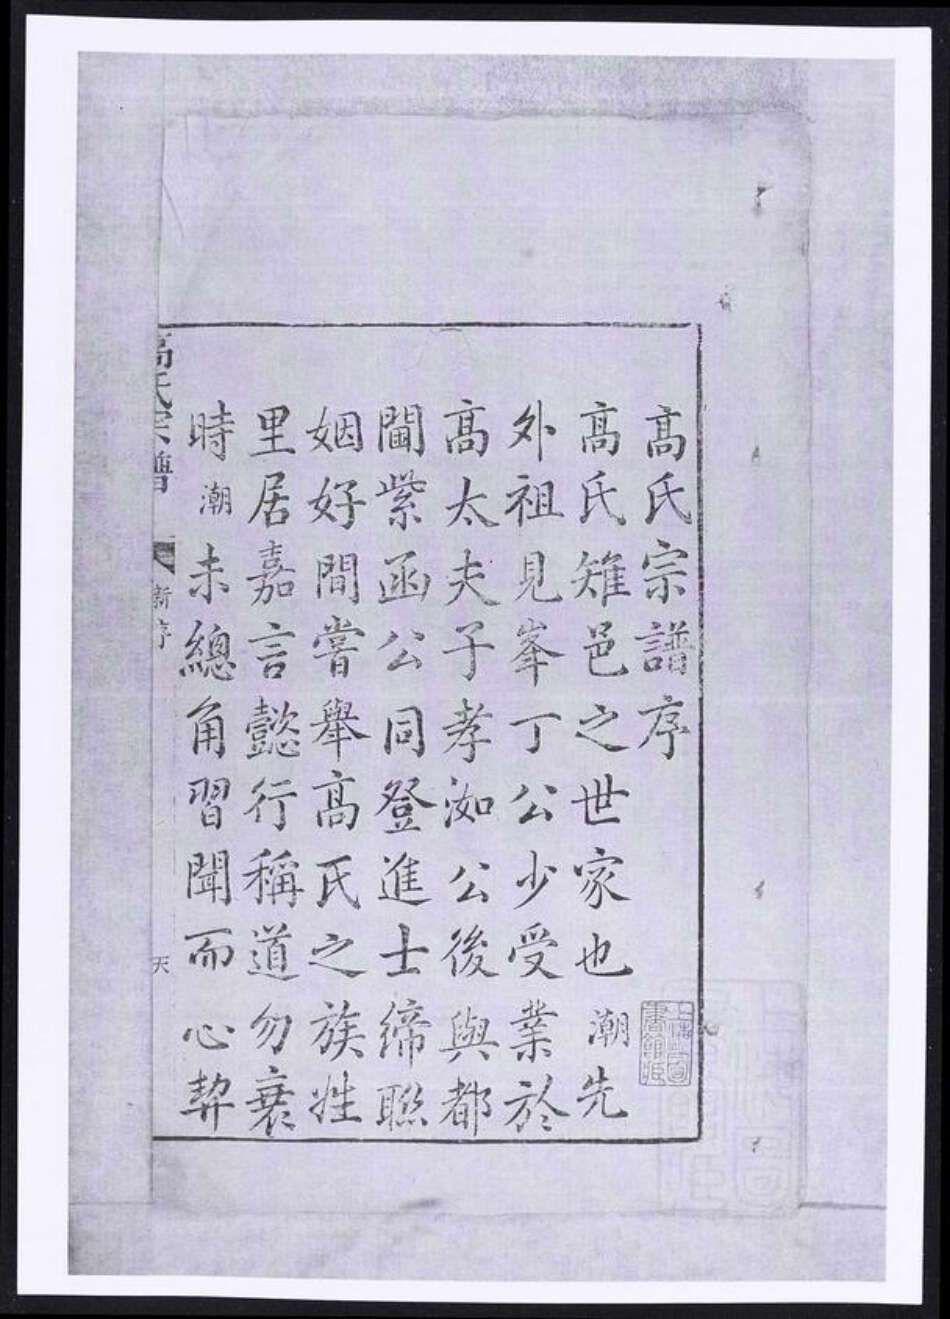 髙氏宗譜序
髙氏雉邑之世家也潮先
外祖見峯丁公少受業於
髙太夫子孝洳公後與都
閫紫函公同登進士締聯
姻好間嘗舉髙氏之族姓
里居嘉言懿行稱道勿衰
時潮未總角習聞而心契
高氏宗譜
新序
天